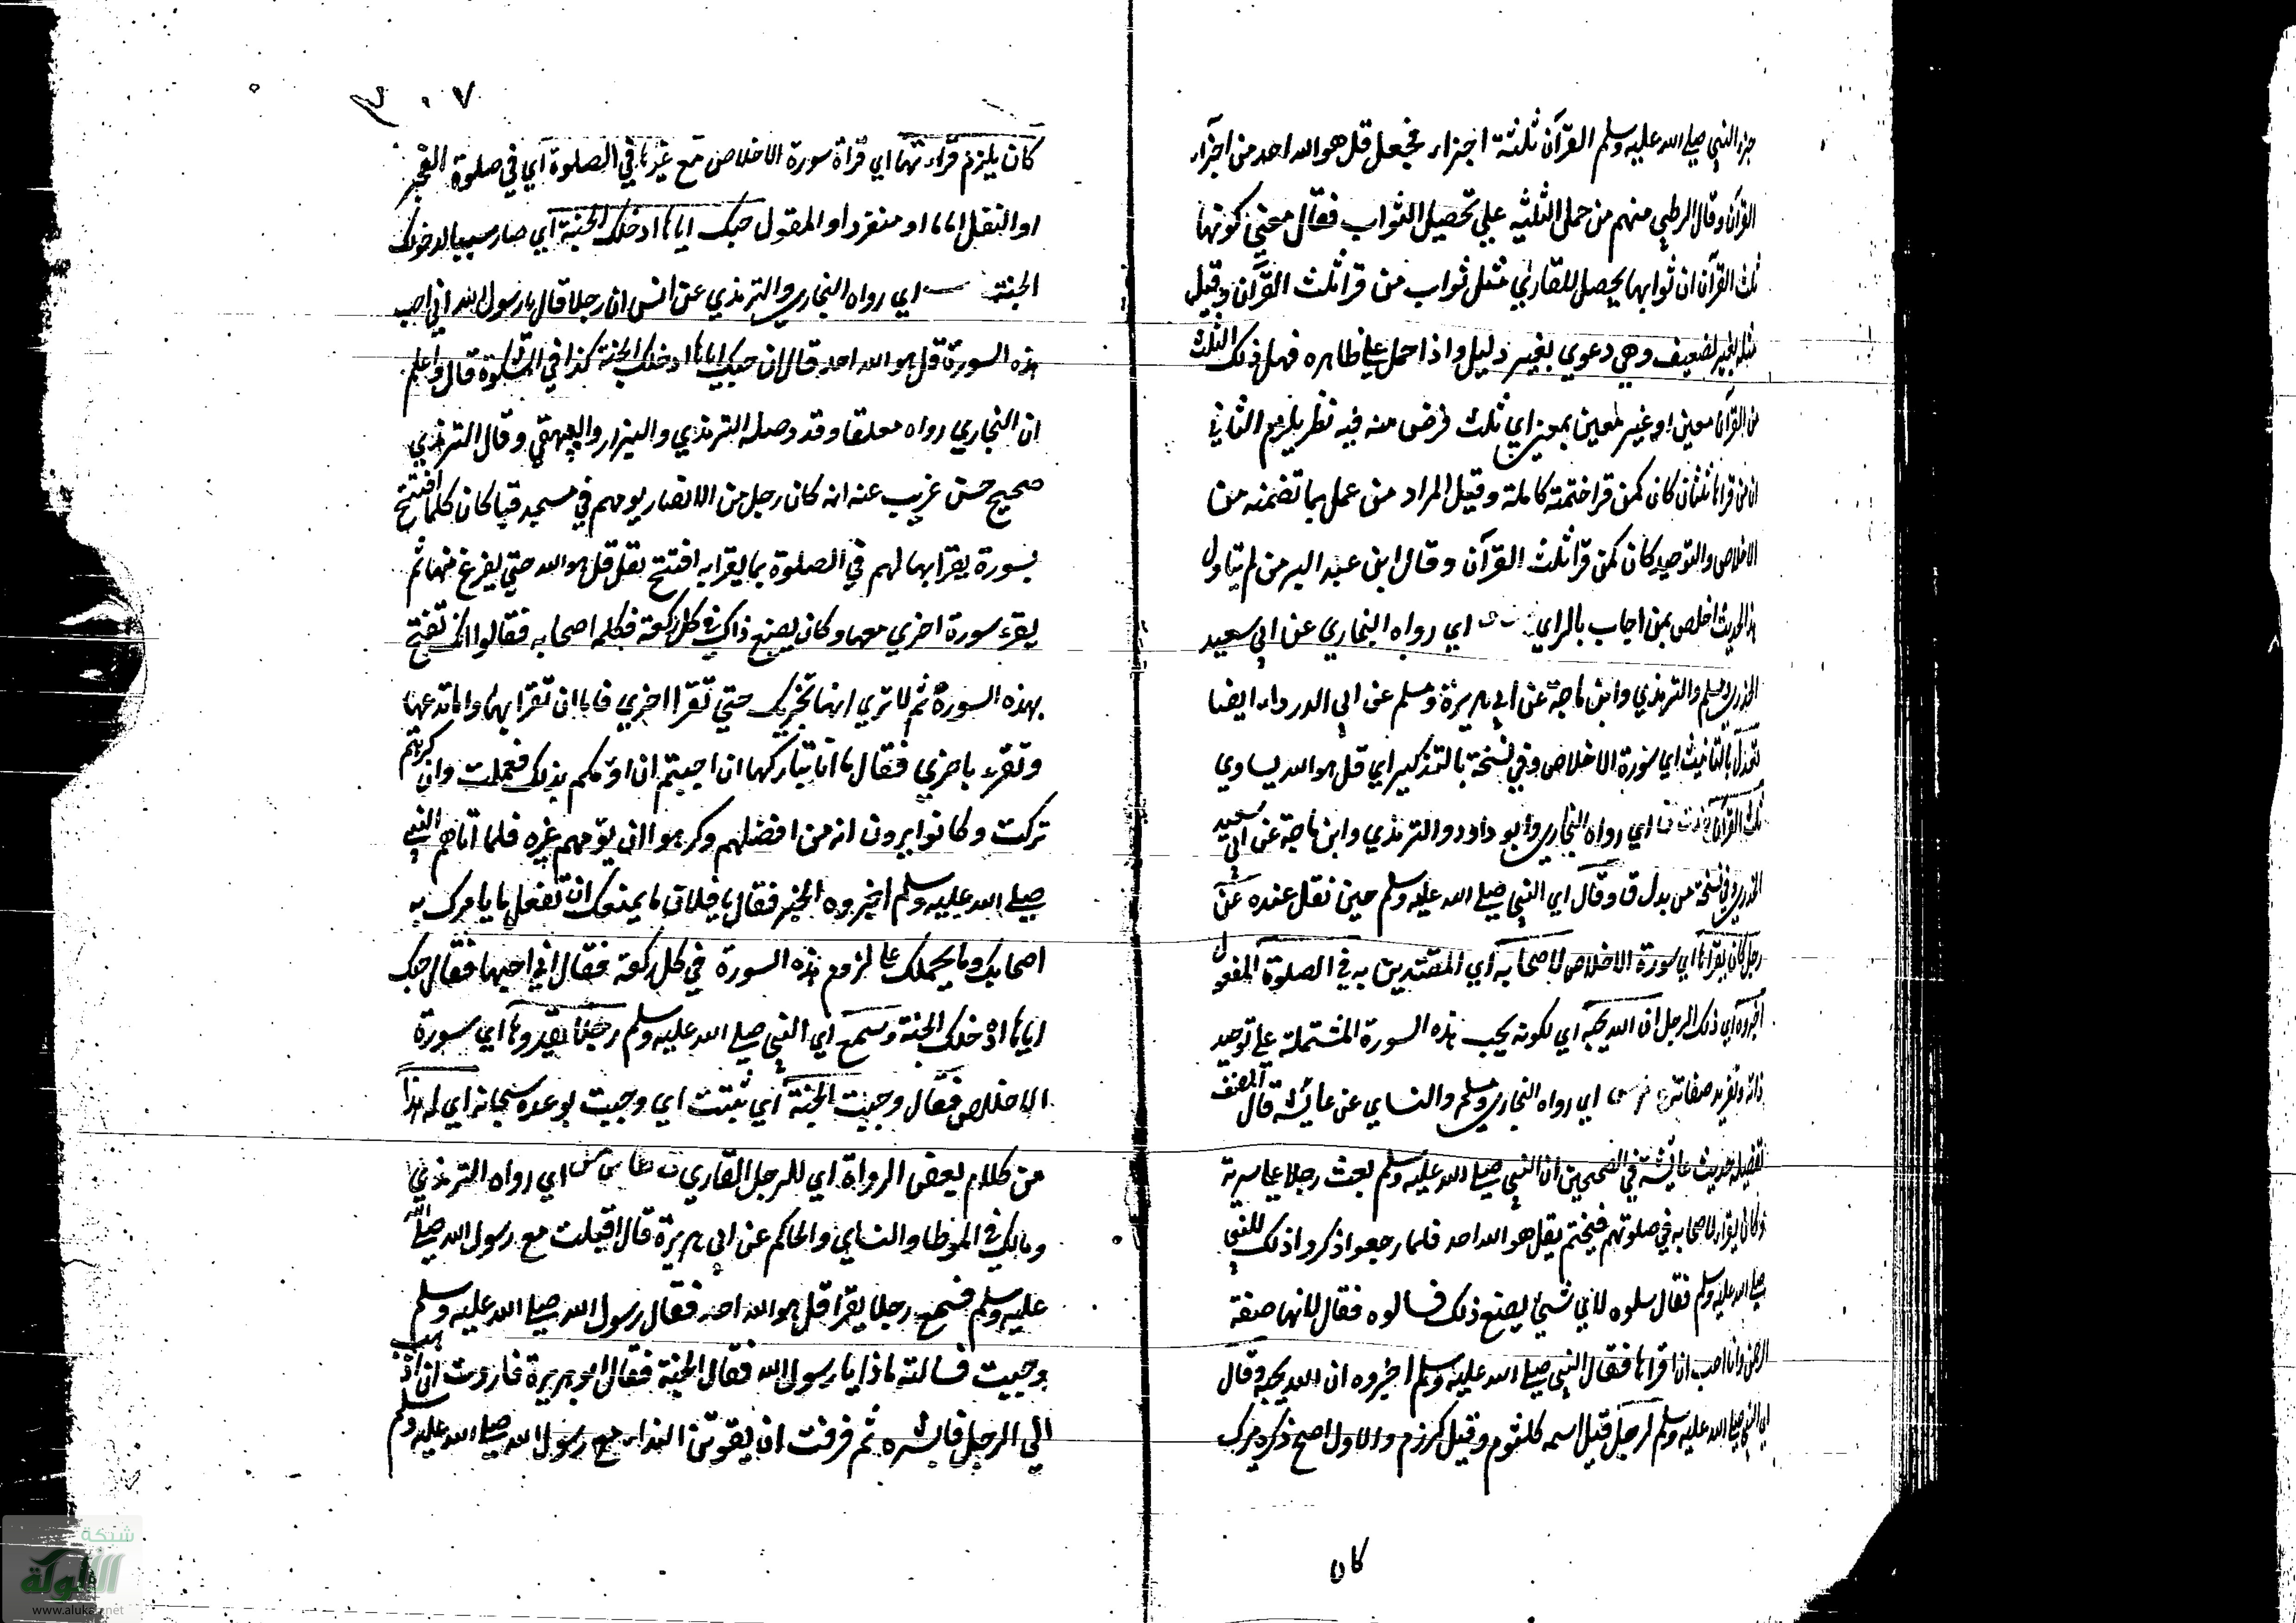 جزء النبي صلے الله عليه وسلم القرآن ثلثة اجزاء فجعل قل هو الله احد من اجزآء
القرآن وقال القرطبي منهم من حمل الثلثيه علي تحصيل الثواب فقال معني كونها
ثلث القرآن ان ثوابها يحصل للقاري مثل ثواب من قرا ثلث القرآن وقيل
مثله بغير تضعيف وهي دعوي بغير دليل واذا حمل علے ظاهره فهل ذلك الثلث
من القرآن معين او غير معين اي ثلث فرض منه فيه نظر يلزم الثاني
ان من قراها ثلثا كان كمن قرا ختمة كاملة وقيل المراد من عمل بما تضمنه من
الاخلاص والتوحيد كان كمن قرا ثلث القرآن وقال ابن عبد البر من لم يتاول
هذا الحديث اخلص ممن اجاب بالراي اي رواه البخاري عن ابي سعيد
الخدري ومسلم والترمذي وابن ماجة عن ابي هريرة ومسلم عن ابي الدرداء ايضا
تعدل بالتانيث اي سورة الاخلاص وفي نسخة بالتذكير اي قل هو الله يساوي
ثلث القرآن اي رواه البخاري وابو داود والترمذي وابن ماجة عن ابي سعيد
الخدري وفي نسخة من بدل ق وقال اي النبي صلے الله عليه وسلم حين نقل عنده عن
رجل كان يقراها اي سورة الاخلاص لاصحابه اي المقتدين به في الصلوة المفعول
اخبروه اي ذلك الرجل ان الله يحبه اي لكونه يحب هذه السورة المشتملة علے توحيد
ذاته وتفريد صفاته اي رواه البخاري ومسلم والنساي عن عايشة قال المصنف
تفصيله حديث عايشة في الصحيحين ان النبي صلے الله عليه وسلم بعث رجلا علے سرية
وكان يقرا لاصحابه في صلوتهم فيختم بقل هو الله احد فلما رجعوا ذكروا ذلك للنبي
صلے الله عليه وسلم فقال سلوه لاي شيء يصنع ذلك فسالوه فقال لانها صفة
الرحمن وانا احب ان اقراها فقال النبي صلے الله عليه وسلم اخبروه ان الله يحبه وقال
اي النبي صلے الله عليه وسلم لرجل قيل اسمه كلثوم وقيل كرزم والاول اصح ذكره ميرك
كان
٣٠٧
كان يلزم قراءتها اي قراة سورة الاخلاص مع غيرها في الصلوة اي في صلوة الفجر
او النفل اماما او منفردا والمقول حبك اياها ادخلك الجنة اي صار سببا لدخولك
الجنة اي رواه البخاري والترمذي عن انس ان رجلا قال يا رسول الله اني احب
هذه السورة قل هو الله احد قال ان حبك اياها ادخلك الجنة كذا في المشكوة قال واعلم
ان البخاري رواه معلقا وقد وصله الترمذي والبزار والبيهقي وقال الترمذي
صحيح حسن غريب عنه انه كان رجل من الانصار يومهم في مسجد قبا كان كلما افتتح
بسورة يقرا بها لهم في الصلوة بما يقرا به افتتح بقل قل هو الله حتي يفرغ منها ثم
يقرء سورة اخري معها وكان يصنع ذلك في كل ركعة فكلمه اصحابه فقالوا انك تفتح
بهذه السورة ثم لا تري انها تجزيك حتي تقرا اخري فاما ان تقرا بها واما تدعها
وتقرء باخري فقال ما انا بتاركها ان احببتم ان اؤمكم بذلك فعلت وان كرهتم
تركت وكانوا يرون انه من افضلهم وكرهوا ان يؤمهم غيره فلما اتاهم النبي
صلے الله عليه وسلم اخبروه الخبر فقال يا فلان ما يمنعك ان تفعل ما يامرك به
اصحابك وما يحملك علے لزوم هذه السورة في كل ركعة فقال اني احبها فقال حبك
اياها ادخلك الجنة وسمع اي النبي صلے الله عليه وسلم رجلا يقروها اي سورة
الاخلاص فقال وجبت الجنة اي ثبتت اي وجبت لوعده سبحانه اي له هذا
من كلام بعض الرواة اي للرجل القاري ت طا س مس اي رواه الترمذي
ومالك في الموطا والنساي والحاكم عن ابي هريرة قال اقبلت مع رسول الله صلے الله
عليه وسلم فسمع رجلا يقرا قل هو الله احد فقال رسول الله صلے الله عليه وسلم
وجبت فسالته ماذا يا رسول الله فقال الجنة فقال ابو هريرة فاردت ان اذهب
الي الرجل فابشره ثم فرقت ان يفوتني الغداء مع رسول الله صلے الله عليه وسلم
شبكة
الألوكة
www.alukah.net